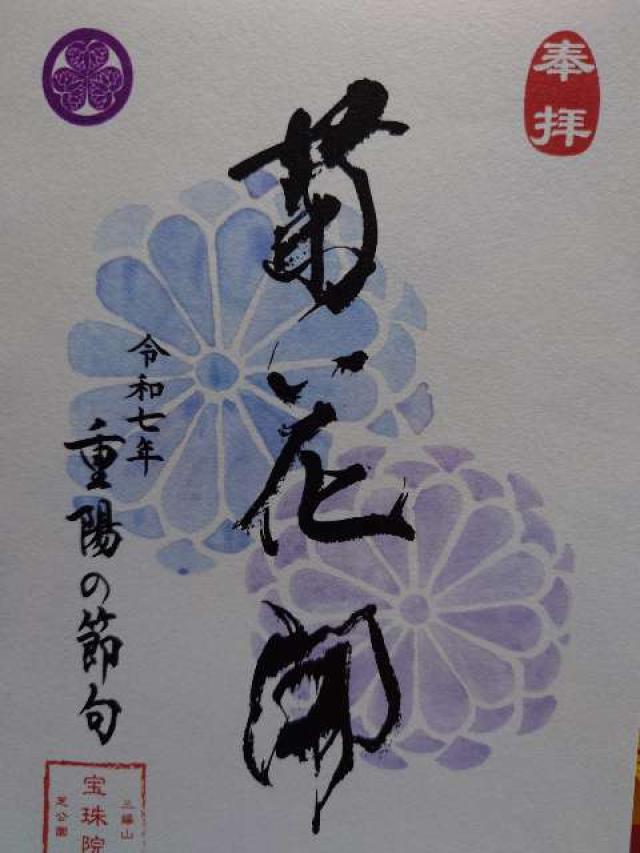 奉拝
菊花開
令和七年
重陽の節句
三縁山
宝珠院
芝公園